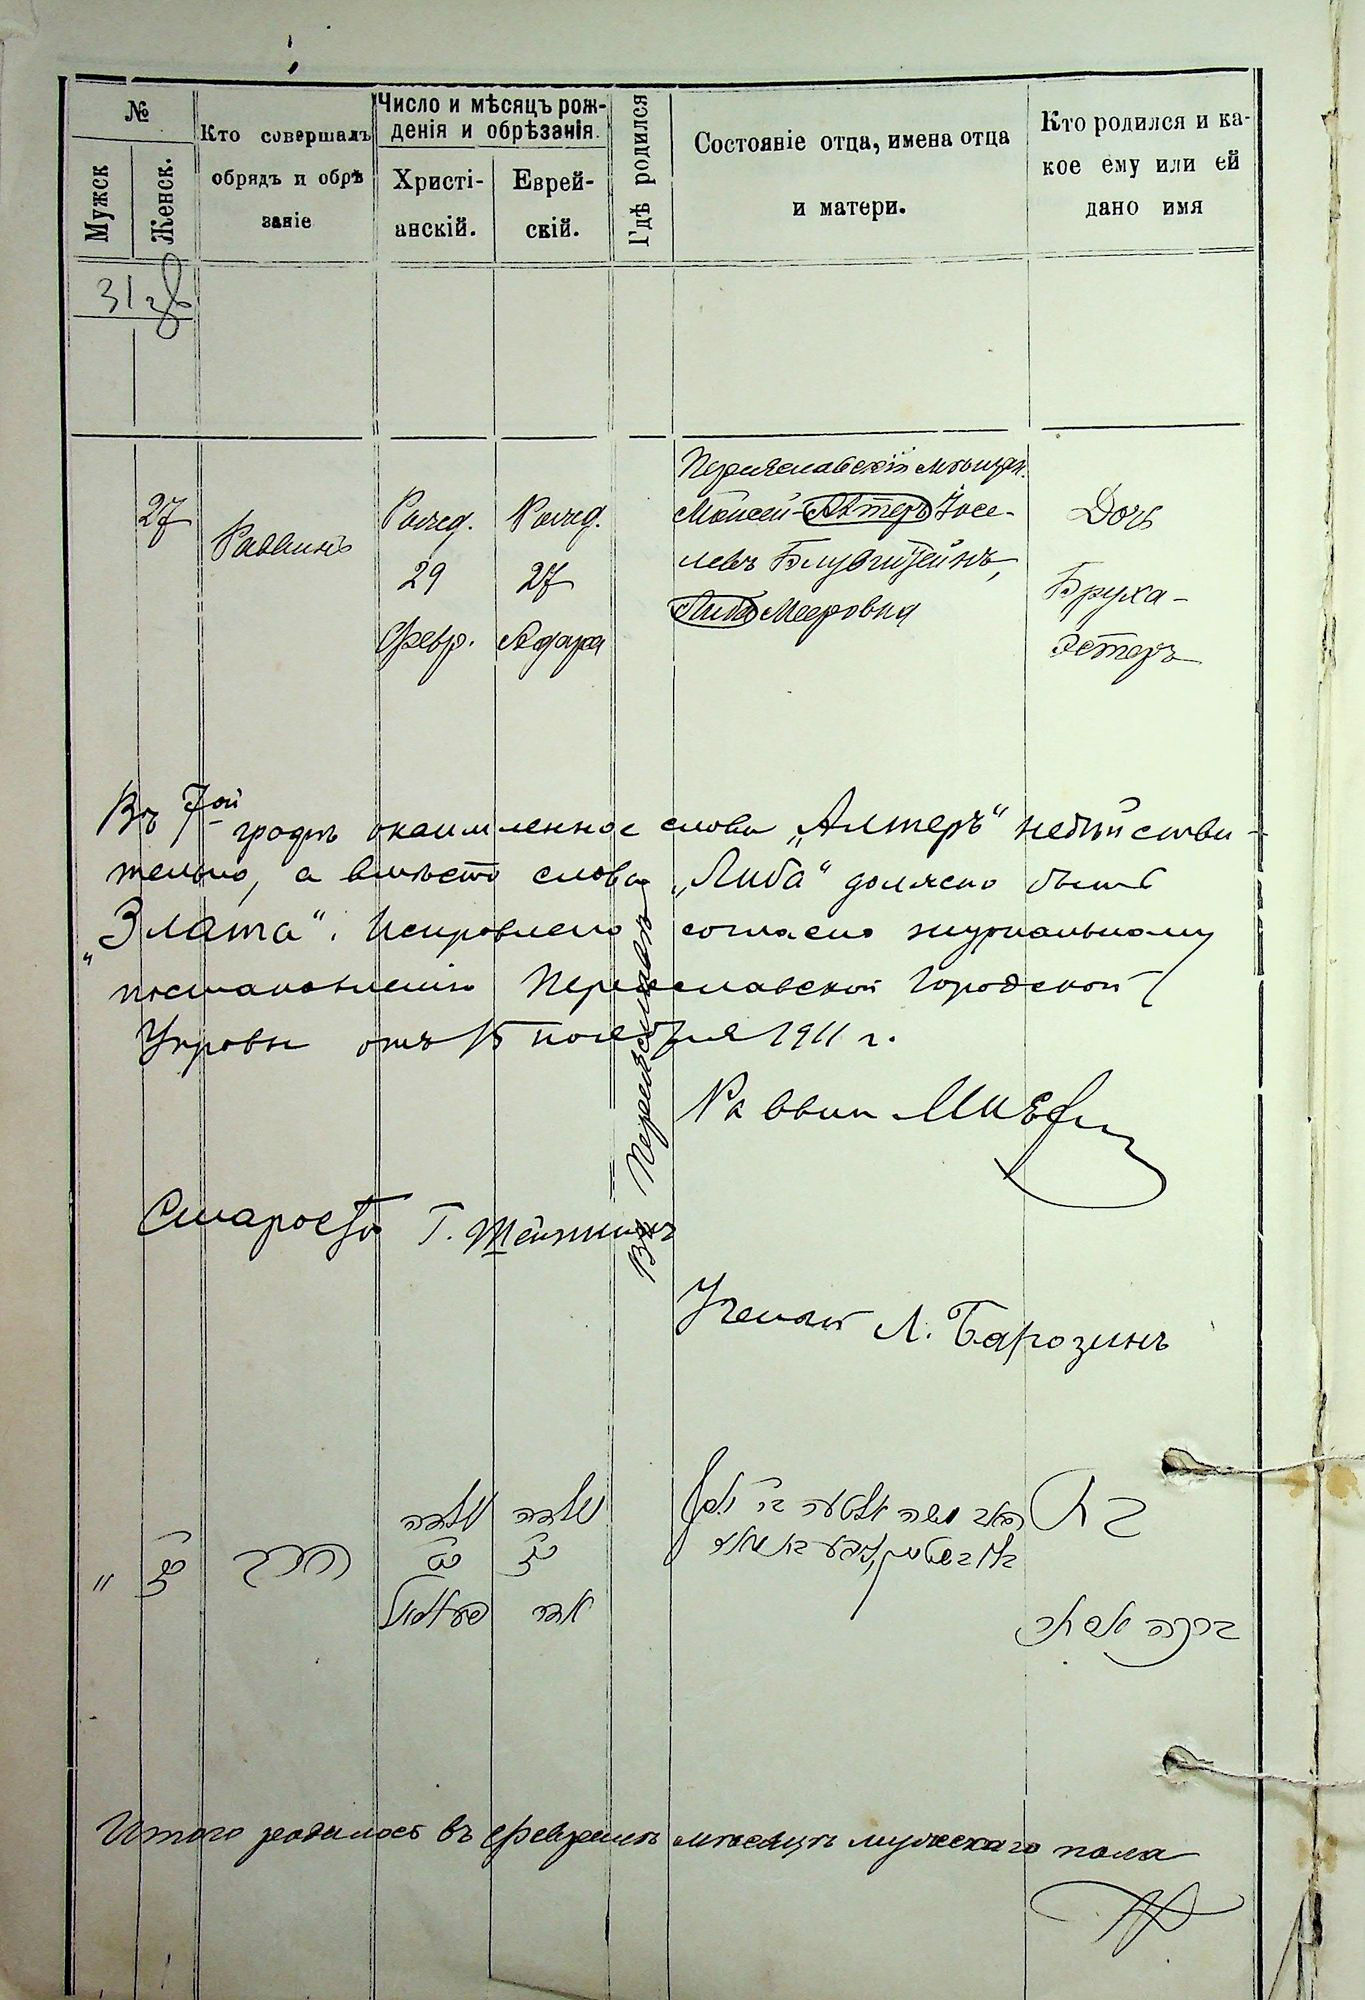 №
Мужск
Женск.
Кто совершалъ
обрядъ и обрѣ
заніе
Число и мѣсяцъ рож-
денія и обрѣзанія.
Христі-
анскій.
Еврей-
скій.
Гдѣ родился
Состояніе отца, имена отца
и матери.
Кто родился и ка-
кое ему или ей
дано имя
31
27
Раввинъ
Рожд.
29
Февр.
Рожд.
27
Адара
Въ Переяславѣ
Переяславскій мѣщан.
Моисей-Алтеръ Іосе-
левъ Блувштейнъ,
Либа Мееровна
Дочь
Бруха-
Эстеръ
Въ 7ой графѣ окаймленное слово „Алтеръ“ недѣйстви-
тельно, а вмѣсто слова „Либа“ должно быть
„Злата“. Исправлено согласно журнальному
постановленію Переяславской Городской
Управы отъ 15 ноября 1911 г.
Раввинъ
Староста Г.
Ученый Л. Барозинъ
"
נולדה
נולדה
כז
אדר
בת
ברכה אסתר
Итого родилось въ Февралѣ мѣсяцѣ мужскаго пола